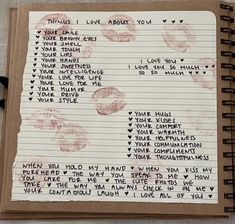 THINGS I LOVE ABOUT YOU ♥ ♥ ♥
♥ YOUR SMILE
♥ YOUR BROWN EYES
♥ YOUR SMELL
♥ YOUR TOUCH
♥ YOUR LIPS
♥ YOUR HANDS
♥ YOUR SWEETNESS
♥ YOUR INTELLIGENCE
♥ YOUR LOVE FOR LIFE
♥ YOUR LOVE FOR ME
♥ YOUR HUMOR
♥ YOUR DRIVE
♥ YOUR STYLE
I LOVE YOU ♥
I LOVE YOU SO MUCH ♥
SO SO MUCH ♥ ♥ ♥
♥ YOUR HUGS
♥ YOUR KISSES
♥ YOUR COMFORT
♥ YOUR WARMTH
♥ YOUR HELPFULNESS
♥ YOUR COMMUNICATION
♥ YOUR COMPLIMENTS
♥ YOUR THOUGHTFULNESS
WHEN YOU HOLD MY HAND ♥ WHEN YOU KISS MY
FOREHEAD ♥ THE WAY YOU SPEAK TO ME ♥ HOW
YOU CARE FOR ME ♥ THE CUTE PHOTOS WE
TAKE ♥ THE WAY YOU ALWAYS CHECK IN ON ME ♥
YOUR CONTAGIOUS LAUGH ♥ I LOVE ALL OF YOU ♥